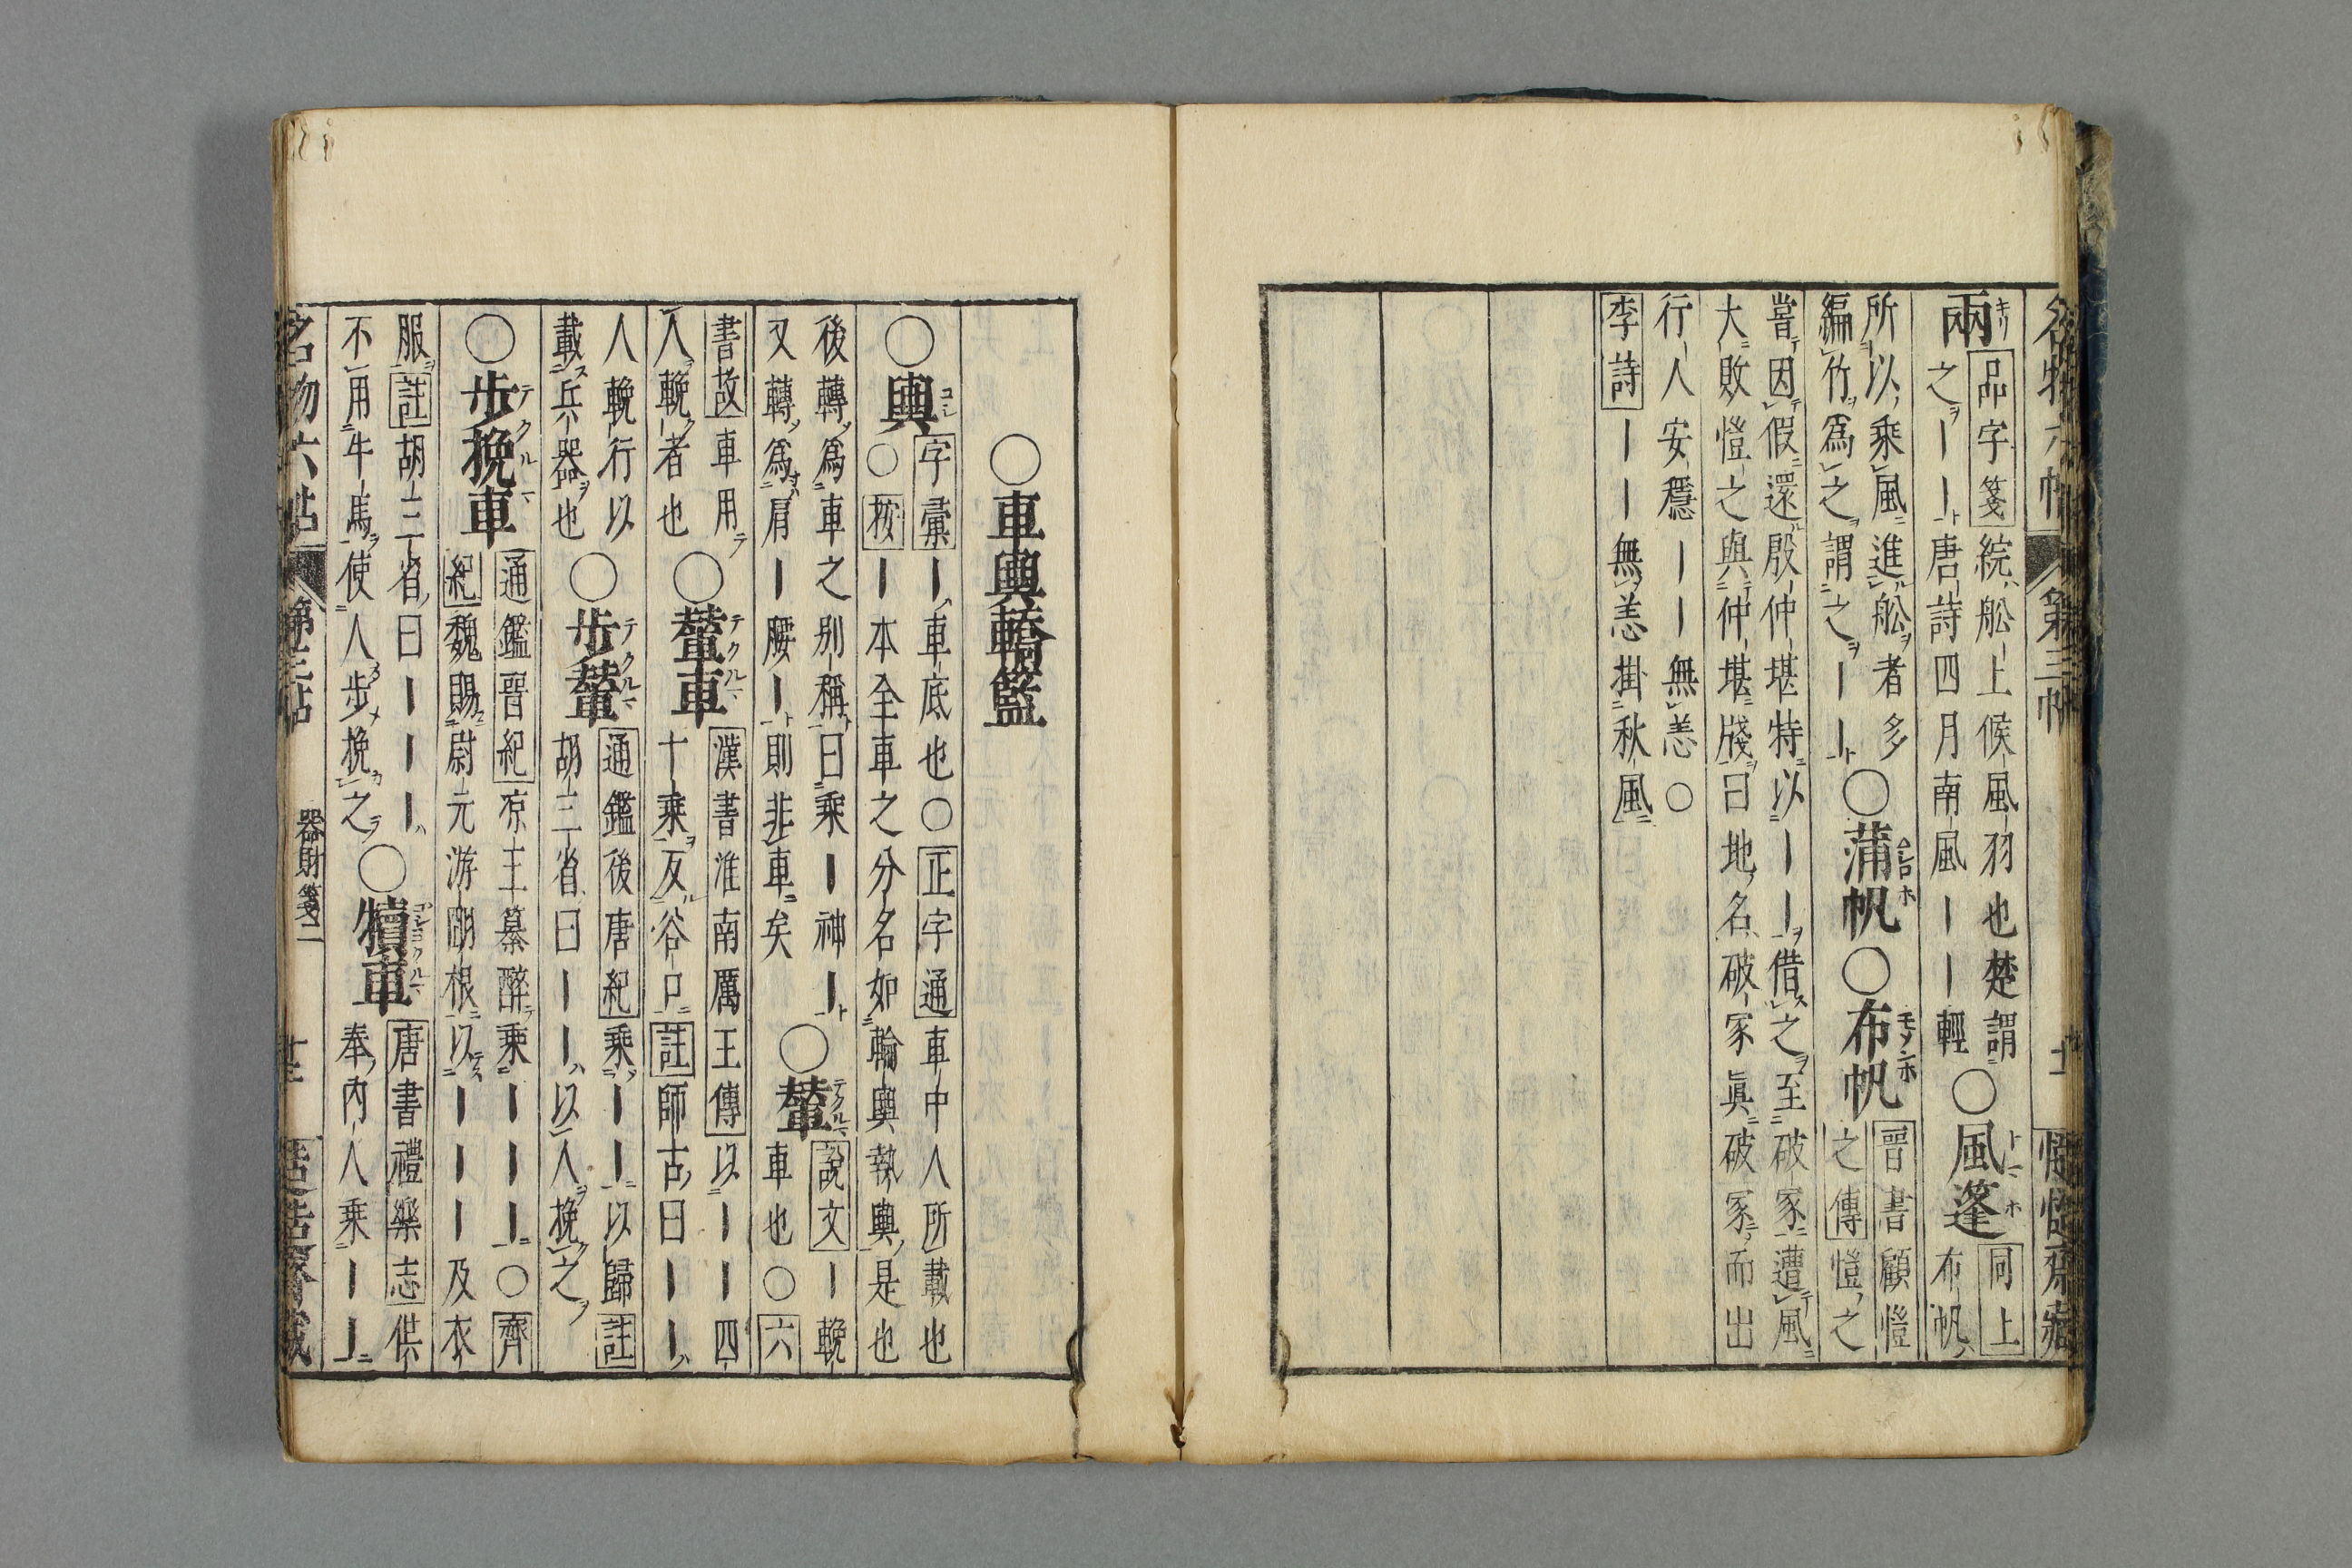 名物六帖 第三帖
兩
品字箋綄舩上候風羽也楚謂
之｜｜唐詩四月南風｜｜輕
○風篷
同上
布帆
所以乘風進舩者多
編竹為之謂之｜｜
○蒲帆○布帆
晉書顧愷
之傳愷之
嘗因假還殷仲堪特以｜｜借之至破冢遭風
大敗愷之與仲堪牋曰地名破冢眞破冢而出
行人安穩｜｜無恙○
李詩｜｜無恙掛秋風
○車輿轎籃
○輿
字彙｜車底也○正字通車中人所載也
○按｜本全車之分名如輪輿執輿是也
後轉為車之別稱曰乘｜神｜
又轉為肩｜腰｜則非車矣
○輦
說文｜輓
車也○六
書故車用
人輓者也
○輦車
漢書淮南厲王傳以｜｜四
十乘反谷口註師古曰｜｜
人輓行以
載兵器也
○步輦
通鑑後唐紀乘｜｜以歸註
胡三省曰｜｜以人挽之
○步挽車
通鑑晉紀凉王纂醉乘｜｜｜○齊
紀魏賜尉元游明根以｜｜｜及衣
服註胡三省曰｜｜｜
不用牛馬使人步挽之
○犢車
唐書禮樂志供
奉內人乘｜｜
名物六帖 第三帖 器財箋二 十三